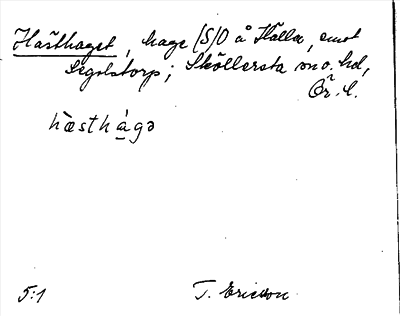 Hästhaget, hage (S)O å Källa, emot
Segolstorp; Sköllersta sn o. hd,
Ör. l.
hæsthágə
5:1 T. Ericsson